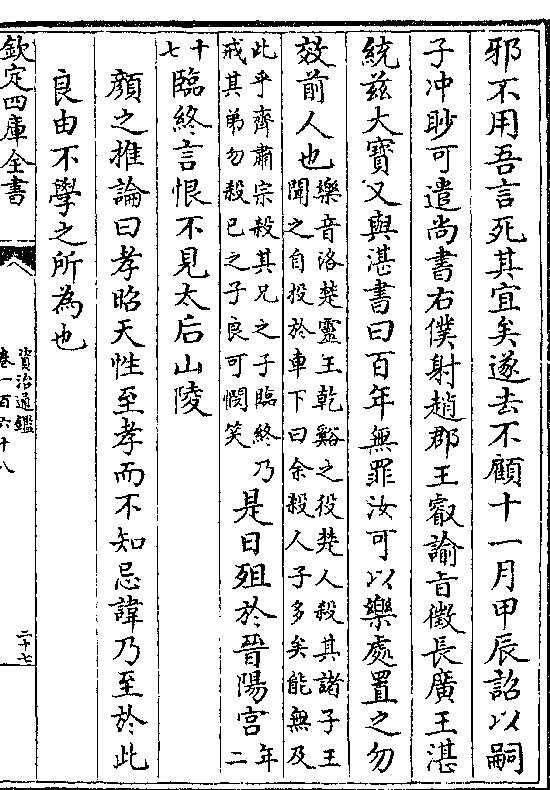 邪不用吾言死其宜矣遂去不顧十一月甲辰詔以嗣
子冲眇可遣尚書右僕射趙郡王叡諭㫖徵長廣王湛
統兹大寶又與湛書曰百年無罪汝可以樂處置之勿
效前人也樂音洛楚靈王乾谿之役楚人殺其諸子王
聞之自投於車下曰余殺人子多矣能無及
此乎齊肅宗殺其兄之子臨終乃
戒其弟勿殺已之子良可憫笑
是日殂於晉陽宫年二
十七臨終言恨不見太后山陵
顔之推論曰孝昭天性至孝而不知忌諱乃至於此
良由不學之所為也
欽定四庫全書
資治通鑑
卷一百六十八
二十七